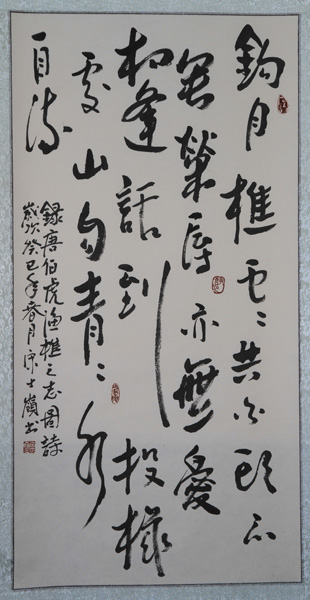 釣月樵雲共白頭
無榮辱亦無憂
相逢話到投機
處山自青々水
自流
錄唐伯虎漁樵之志圖詩
歲次癸巳年春月宋士嶺書